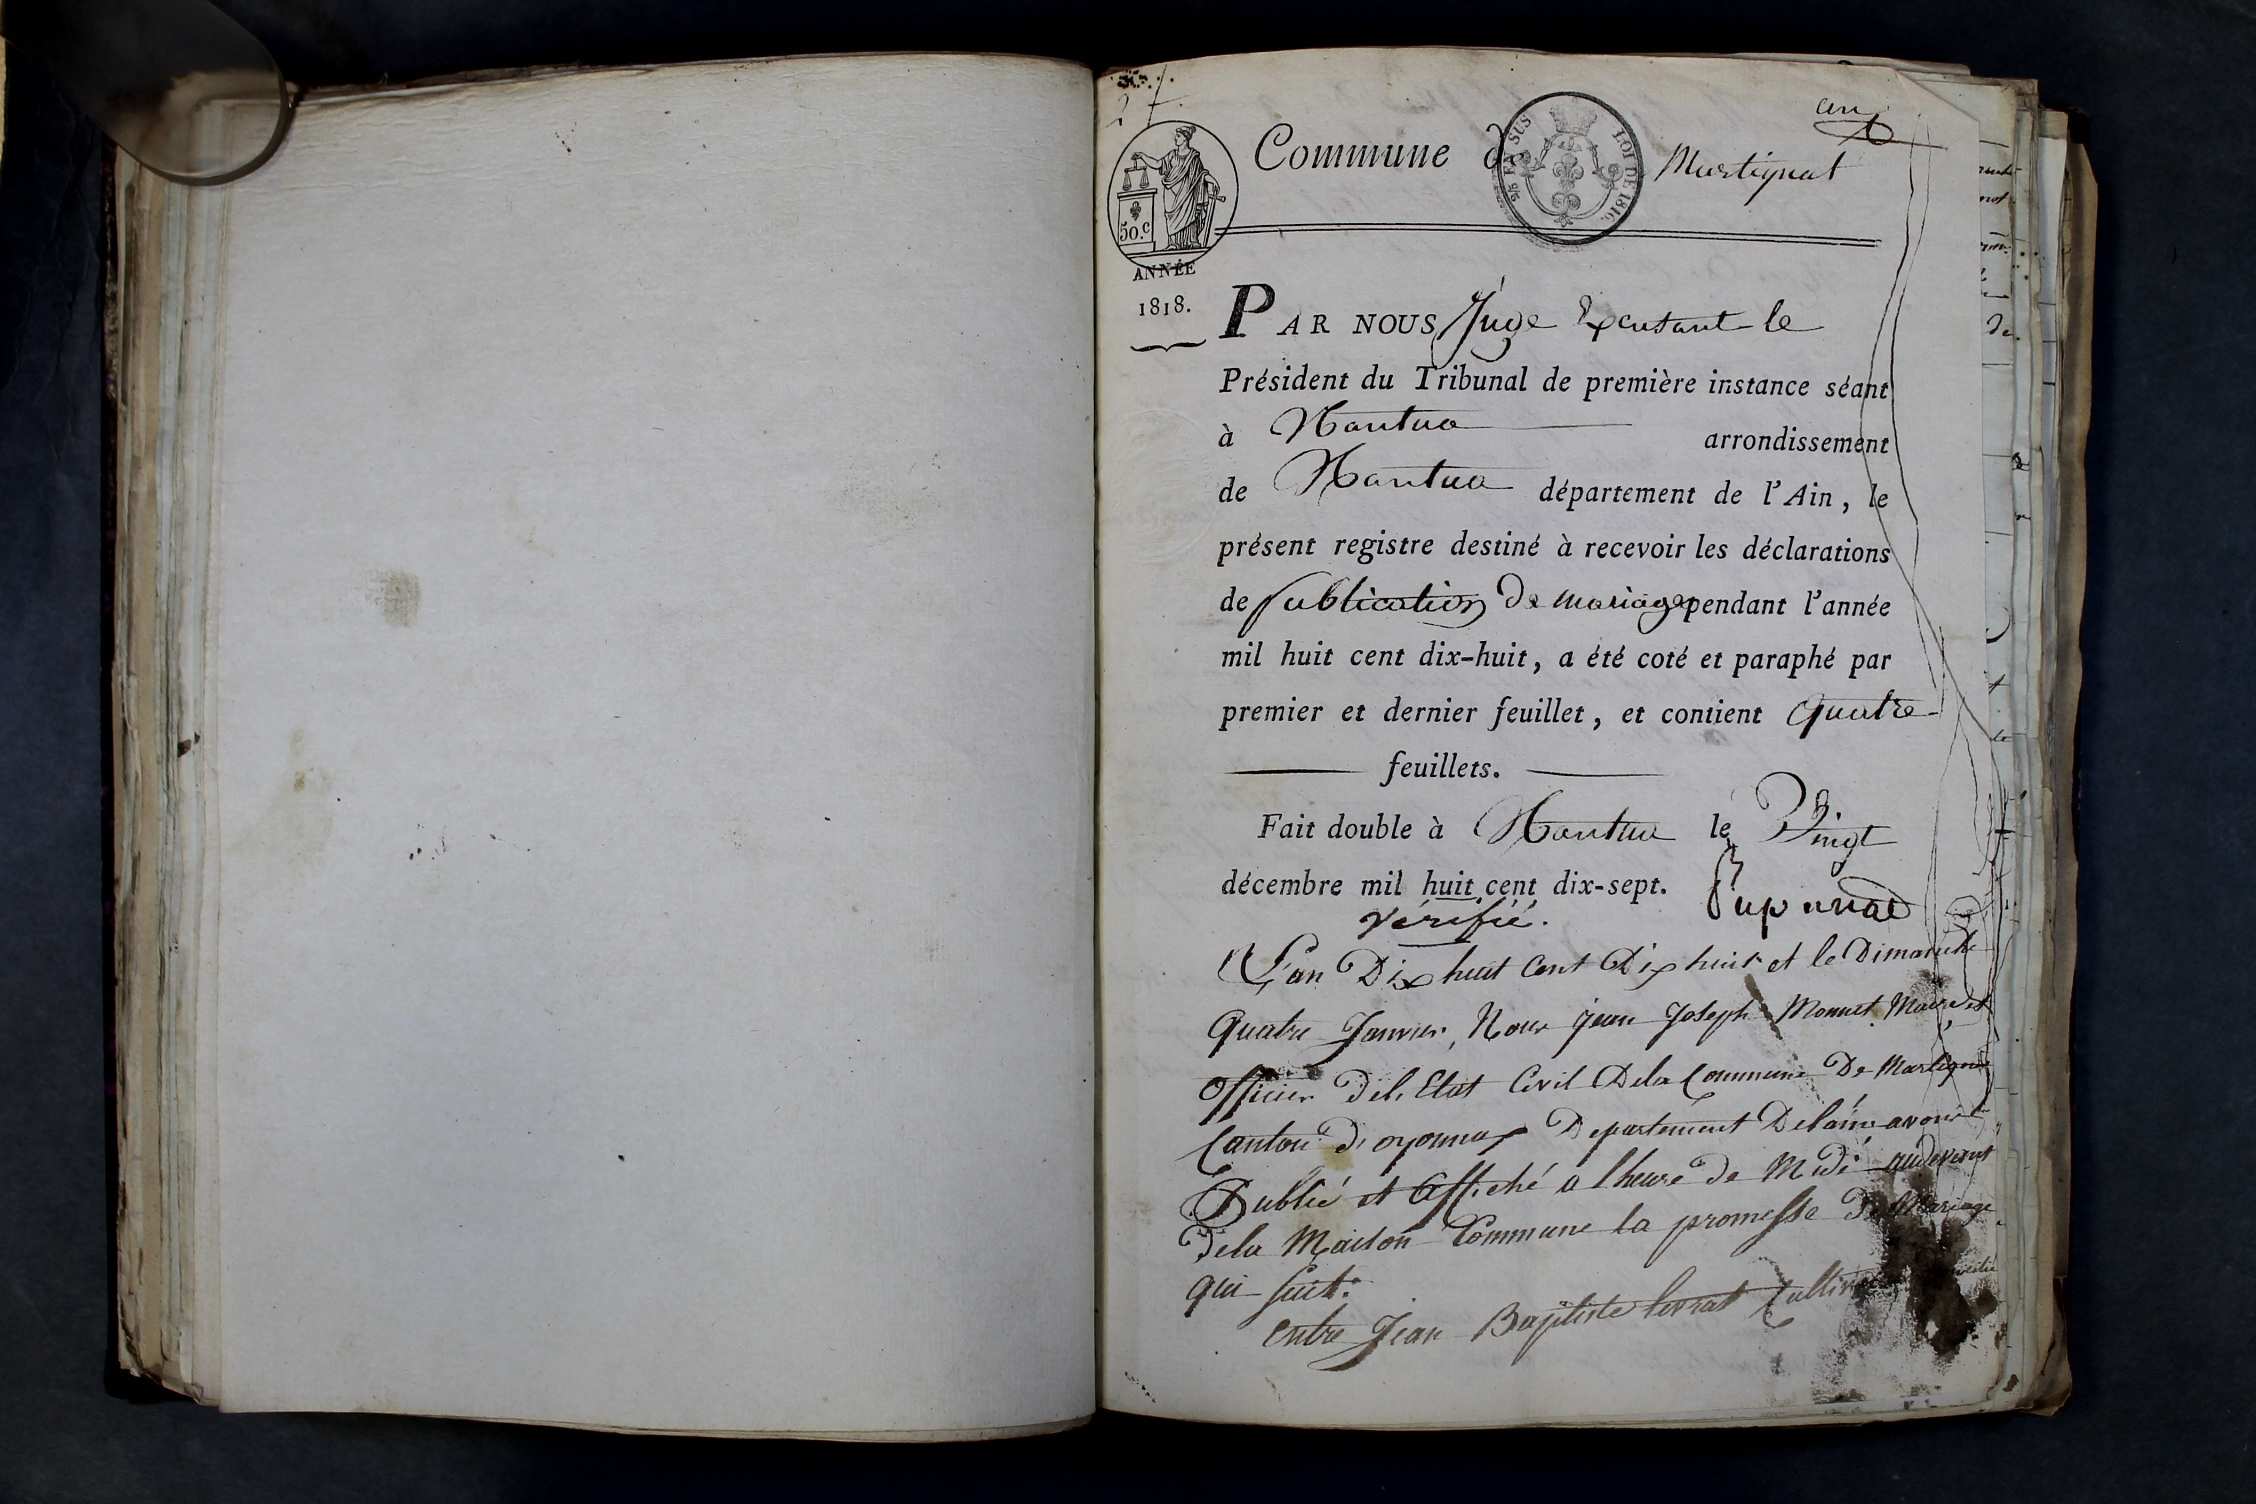 Commune de Martignat
50.c
ANNÉE
1818.
EN SUS
LOI DE 1816.
PAR NOUS Juge Exerçant le
Président du Tribunal de première instance séant
à Nantua arrondissement
de Nantua département de l'Ain, le
présent registre destiné à recevoir les déclarations
de publication de mariage pendant l'année
mil huit cent dix-huit, a été coté et paraphé par
premier et dernier feuillet, et contient quatre
feuillets.
Fait double à Nantua le Vingt
décembre mil huit cent dix-sept.
Vérifié.
L'an Dix huit Cent Dix huit et le Dimanche
Quatre Janvier, Nous jean Joseph Monnet Maire et
Officier del Etat Civil Dela Commune De Martignat
Canton D'oyonnax Departement Delain avons
Publié et Affiché a lheure de Midi audevant
Dela Maison Commune la promesse De Mariage
qui suit:
entre Jean Baptiste Levrat